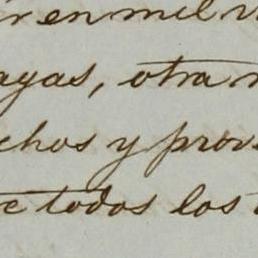 en mil
ayas, otra
chos y prov
e todos los